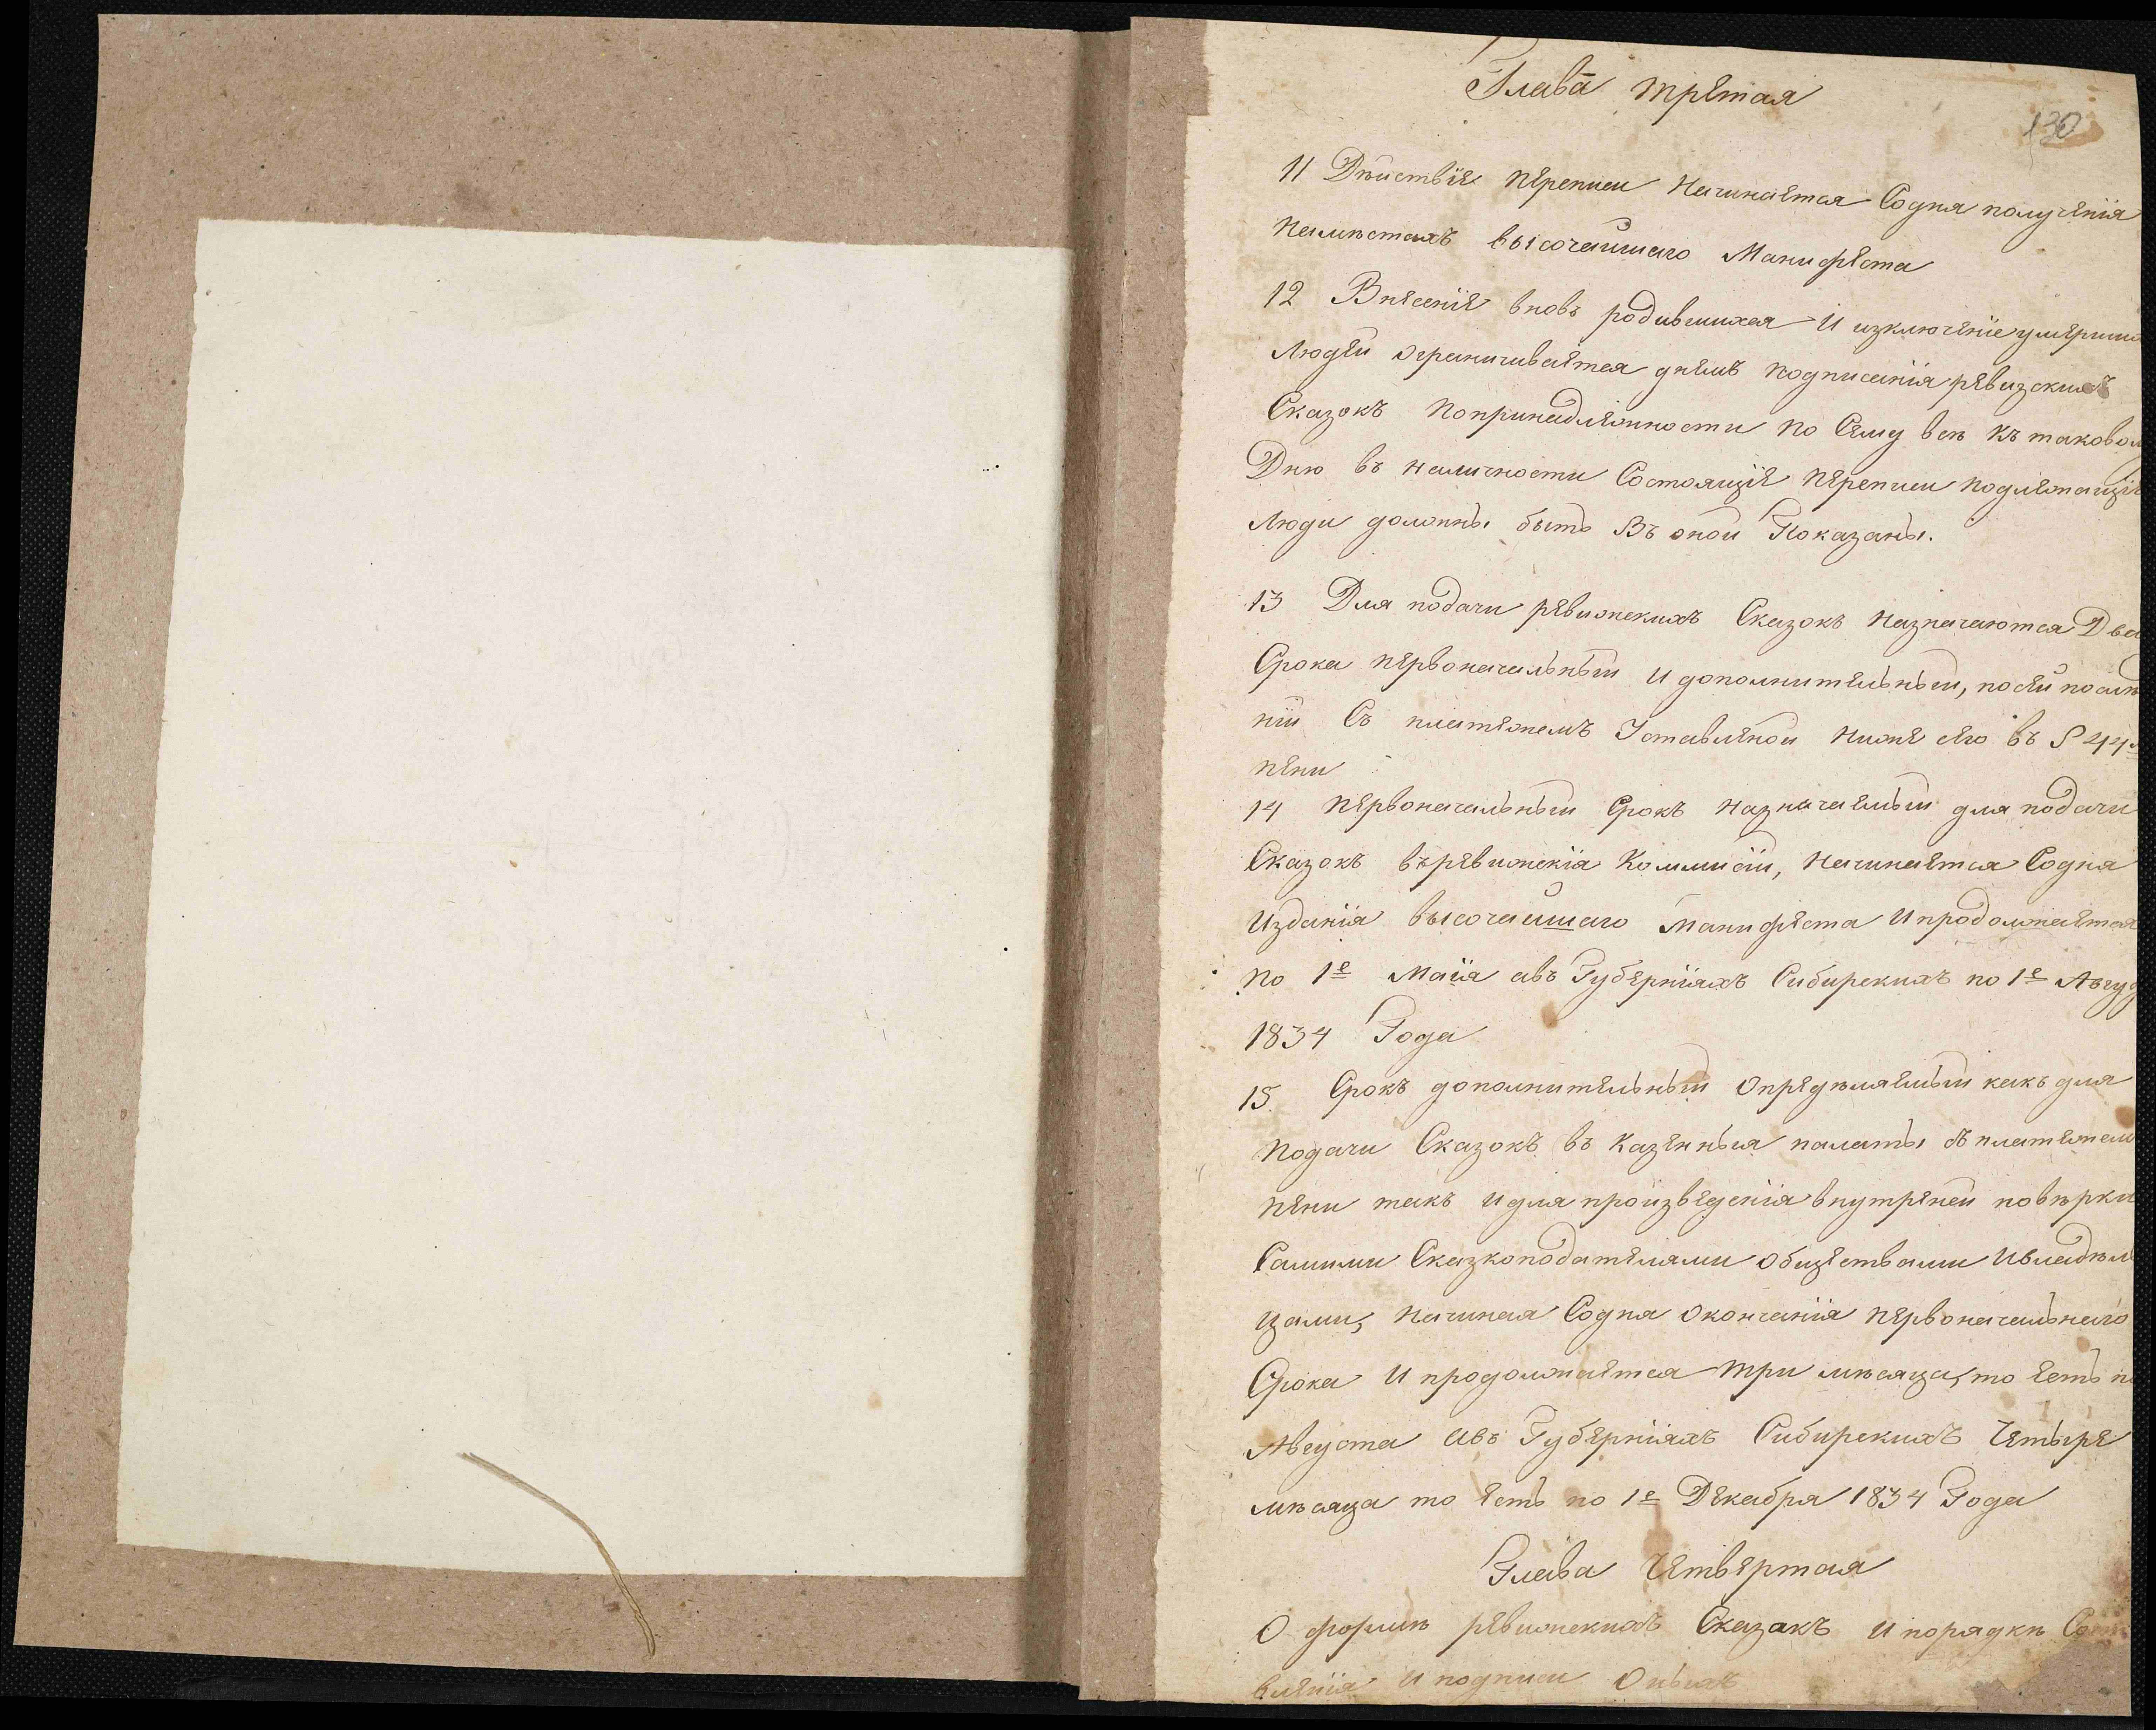 Глава третая
130
11 Дѣиствіе переписи Начинается Содня полученія
Намѣстахъ высочайшаго Манифеста
12 Внесеніе вновь родившихся И изключеніе умерши
Людеи ограничивается днемъ подписанія ревизскихъ
Сказокъ Попринадлежности По Сему всѣ Къ таковом
Дню въ наличности Состоящіе переписи подлежащіе
Люди должны быть Въ оной Показаны.
13 Для подачи ревижскихъ Сказокъ Назначаются Два
Срока первоначальныи И дополнительныи, посей послѣ
ніи Съ платежемъ Уставленои Ниже сего въ § 44м
пени
14 Первоначальныи Срокъ Назначаемыи для подачи
Сказокъ въревижскія Коммисіи, Начинается Содня
Изданія высочайшаго Манифеста Ипродолжается
По 1е Маія авъ Губерніяхъ Сибирскихъ по 1е Авгус
1834 Года
15 Срокъ дополнительныи Опредѣляемыи какъ для
Подачи Сказокъ въ Казенныя палаты съ платежем
Пени такъ Идля произведенія внутренеи повѣрки
Самими Сказкоподателями Обществами Ивладѣл
цами, Начиная Содня Окончанія первоначальнаго
Срока И продолжается три мѣсяца, то есть по
Августа Авъ Губерніяхъ Сибирскихъ Четыре
мѣсяца то есть по 1е Декабря 1834 Года
Глава Четвертая
О формѣ ревижскихъ Сказакъ И порядкѣ Со
вленія И подписи Оныхъ